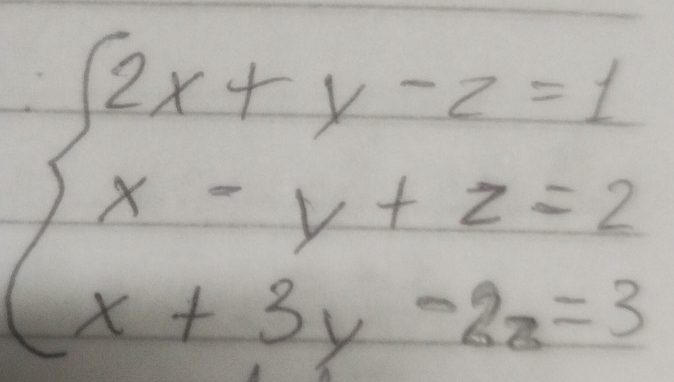 2x + y - z = 1
x - y + z = 2
x + 3y - 2z = 3